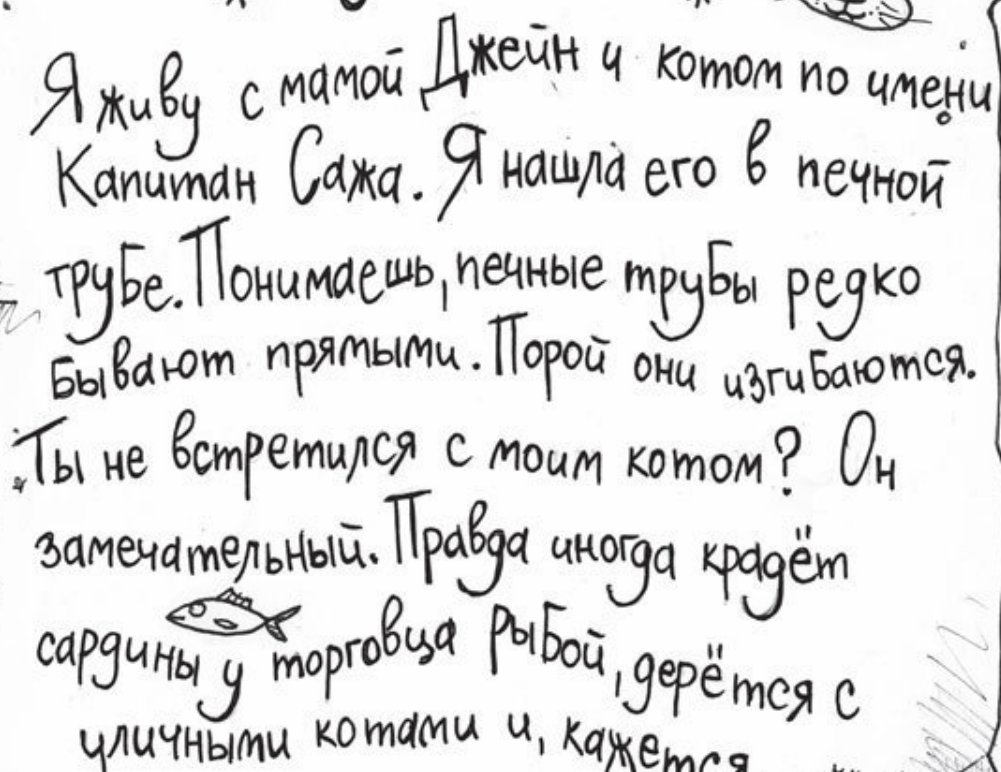 Я живу с мамой Джейн и котом по имени
Капитан Сажа. Я нашла его в печной
трубе. Понимаешь, печные трубы редко
бывают прямыми. Порой они изгибаются.
Ты не встретился с моим котом? Он
замечательный. Правда иногда крадёт
сардины у торговца рыбой, дерётся с
уличными котами и, кажется